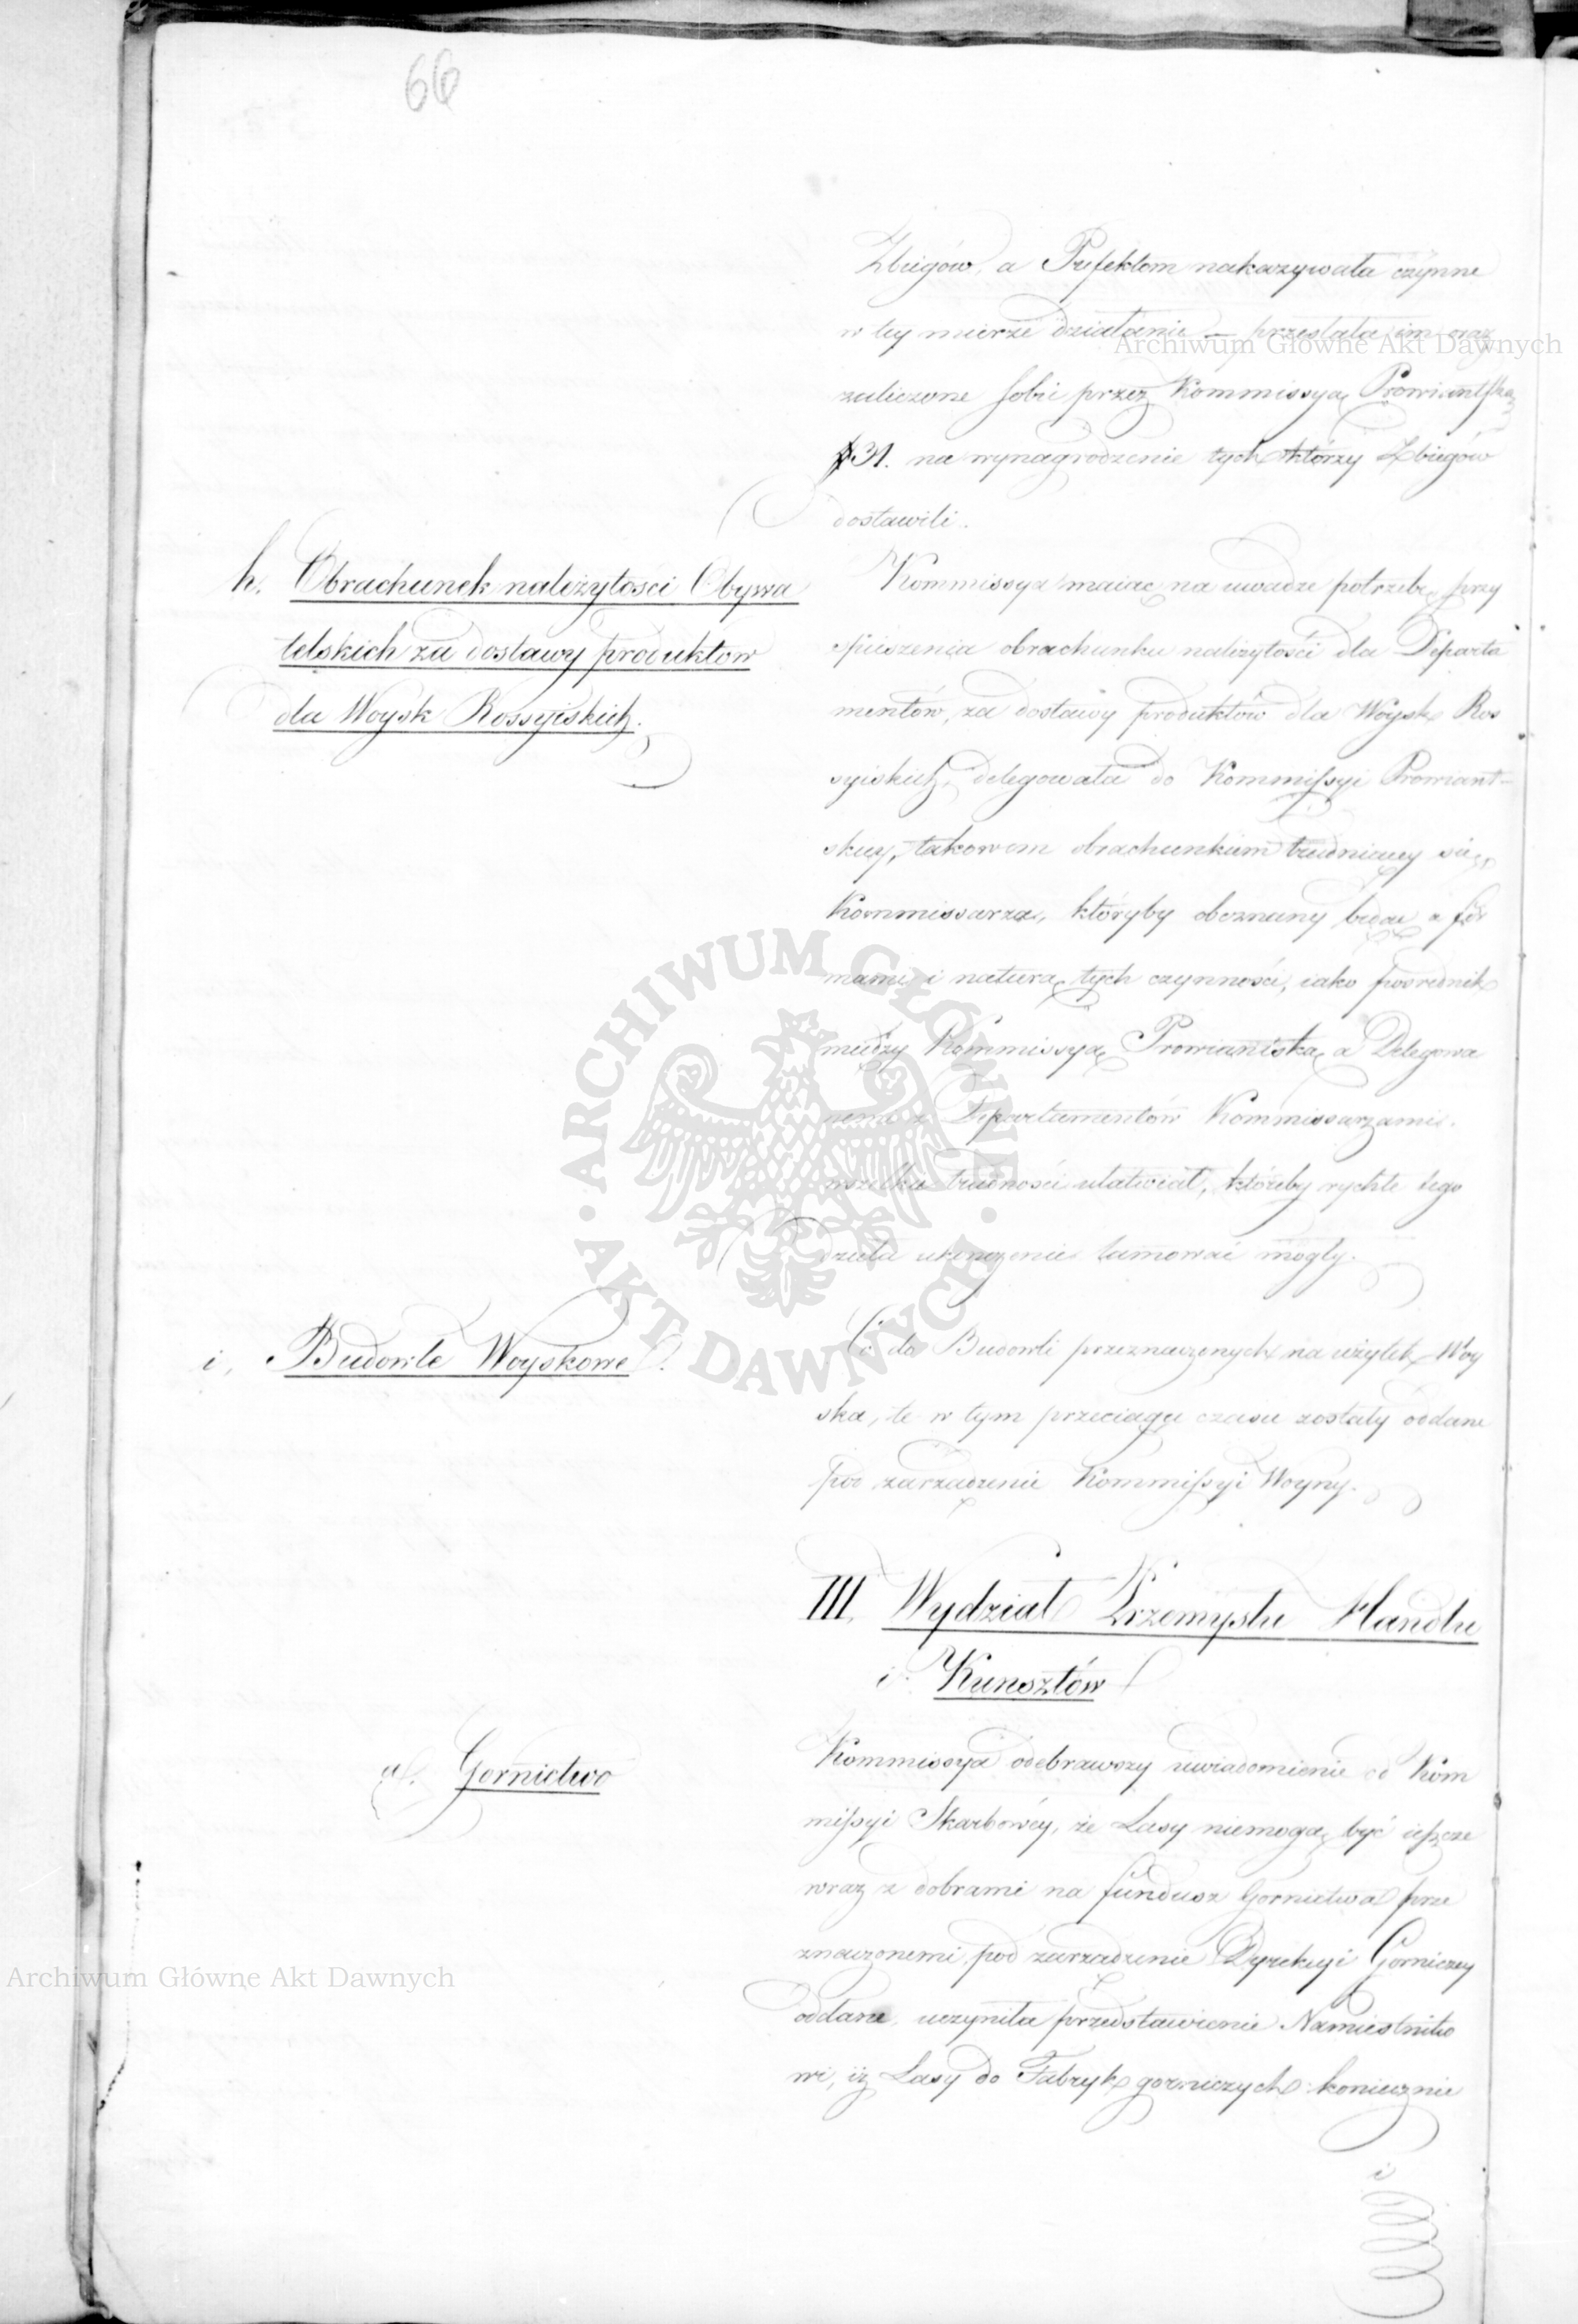 66
Zbiegów, a Prefektom nakazywała czynne
w tey mierze działanie – przesłała im oraz
zaliczone sobie przez Kommissyą Prowiantską
#31. na wynagrodzenie tych którzy Zbiegów
dostawili.
h. Obrachunek należytości Obywa
telskich za dostawy produktow
dla Woysk Rossyiskich.
Kommissya maiąc na uwadze potrzebę przy
spieszenia obrachunku należytości dla Departa
mentów, za dostawy produktów dla Woysk Ros
syiskich, delegowała do Kommissyi Prowiant-
skiey, takowem obrachunkiem trudniącey się,
Kommissarza, któryby obeznany będąc z for
mami i naturą tych czynności, iako posrednik
między Kommissyą Prowiantską a Delegowa
nemi z Departamentów Kommissarzami.
wszelkie trudności ułatwiał, któreby rychłe tego
dzieła ukończenie tamować mogły.
i. Budowle Woyskowe.
Co do Budowli przeznaczonych na użytek Woy
ska, te w tym przeciągu czasu zostały oddane
pod zarządzenie Kommissyi Woyny.
III. Wydział Przemysłu Handlu
i Kunsztów
a. Gornictwo
Kommissya odebrawszy uwiadomienie od Kom
missyi Skarbowéy, że Lasy niemogą być ieszcze
wraz z dobrami na fundusz Gornictwa prze
znaczonemi pod zarządzenie Dyrekcyi Gorniczey
oddane, uczyniła przedstawienie Namiestniko
wi, iż Lasy do Fabryk gorniczych koniecznie
i
Archiwum Główne Akt Dawnych
ARCHIWUM GŁÓWNE AKT DAWNYCH
Archiwum Główne Akt Dawnych